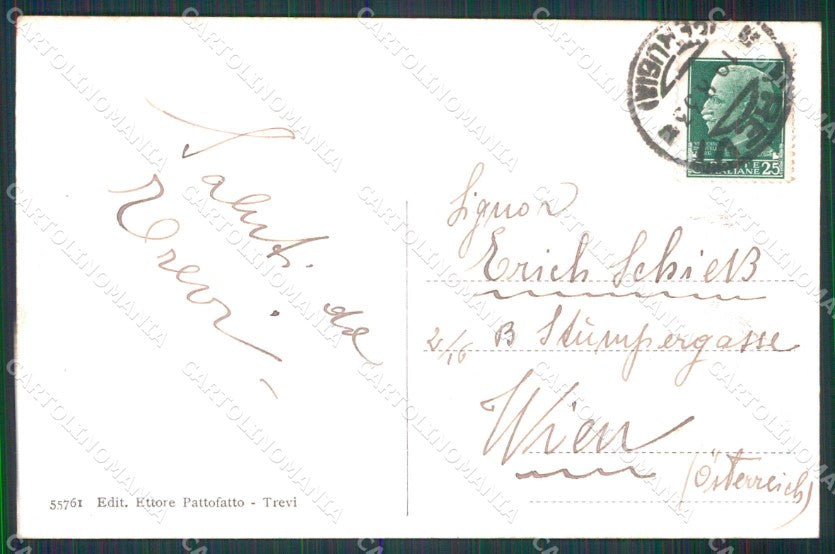 Saluti da
Trevi
Signor
Erich Schieß
2/16 B Stumpergasse
Wien
(Österreich)
55761 Edit. Ettore Pattofatto - Trevi
TREVI
(PERUGIA)
POSTE ITALIANE 25
CARTOLINOMANIA